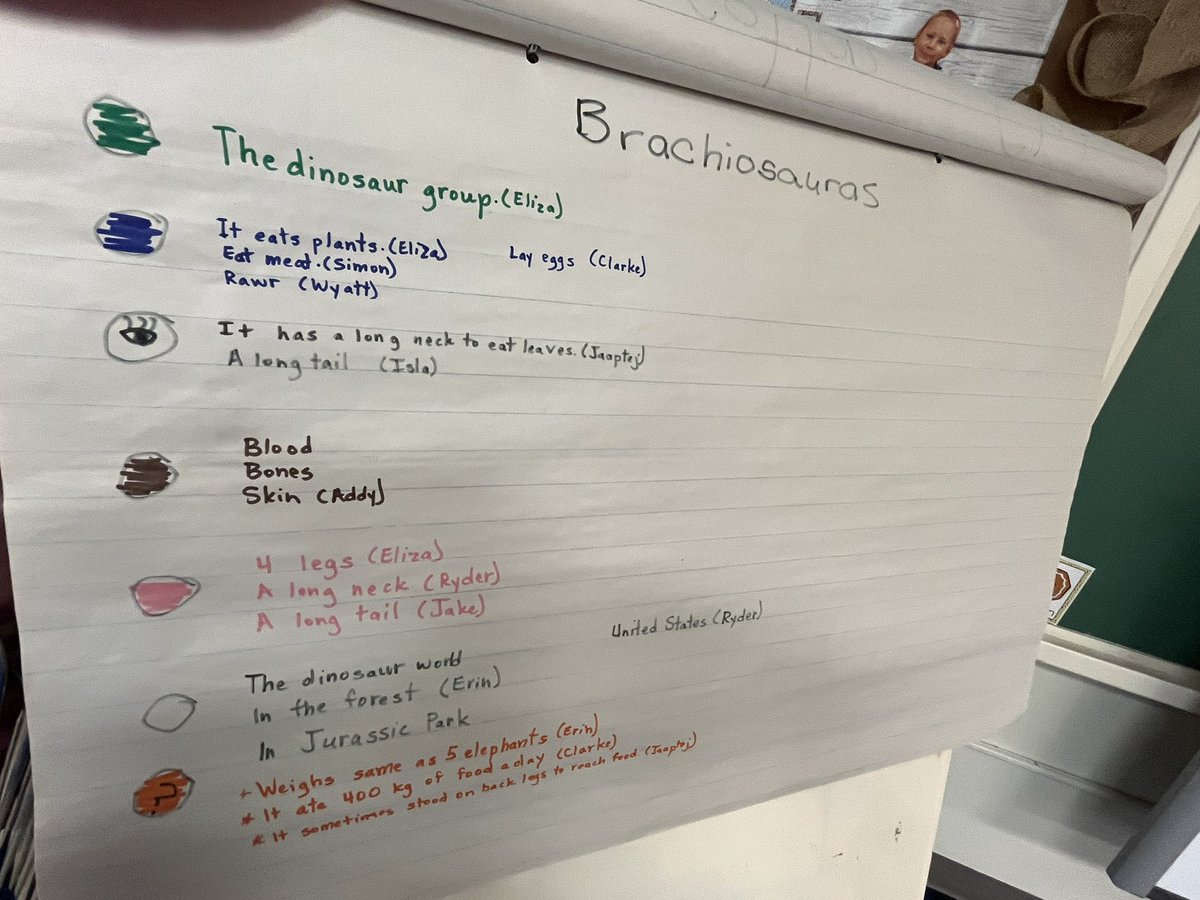 Brachiosauras
The dinosaur group. (Eliza)
It eats plants. (Eliza)
Lay eggs (Clarke)
Eat meat. (Simon)
Rawr (Wyatt)
It has a long neck to eat leaves. (Jaaptej)
A long tail (Isla)
Blood
Bones
Skin (Addy)
4 legs (Eliza)
A long neck (Ryder)
A long tail (Jake)
United States (Ryder)
The dinosaur world
In the forest (Erin)
In Jurassic Park
?
* Weighs same as 5 elephants (Erin)
* It ate 400 kg of food a day (Clarke)
* It sometimes stood on back legs to reach food (Jaaptej)